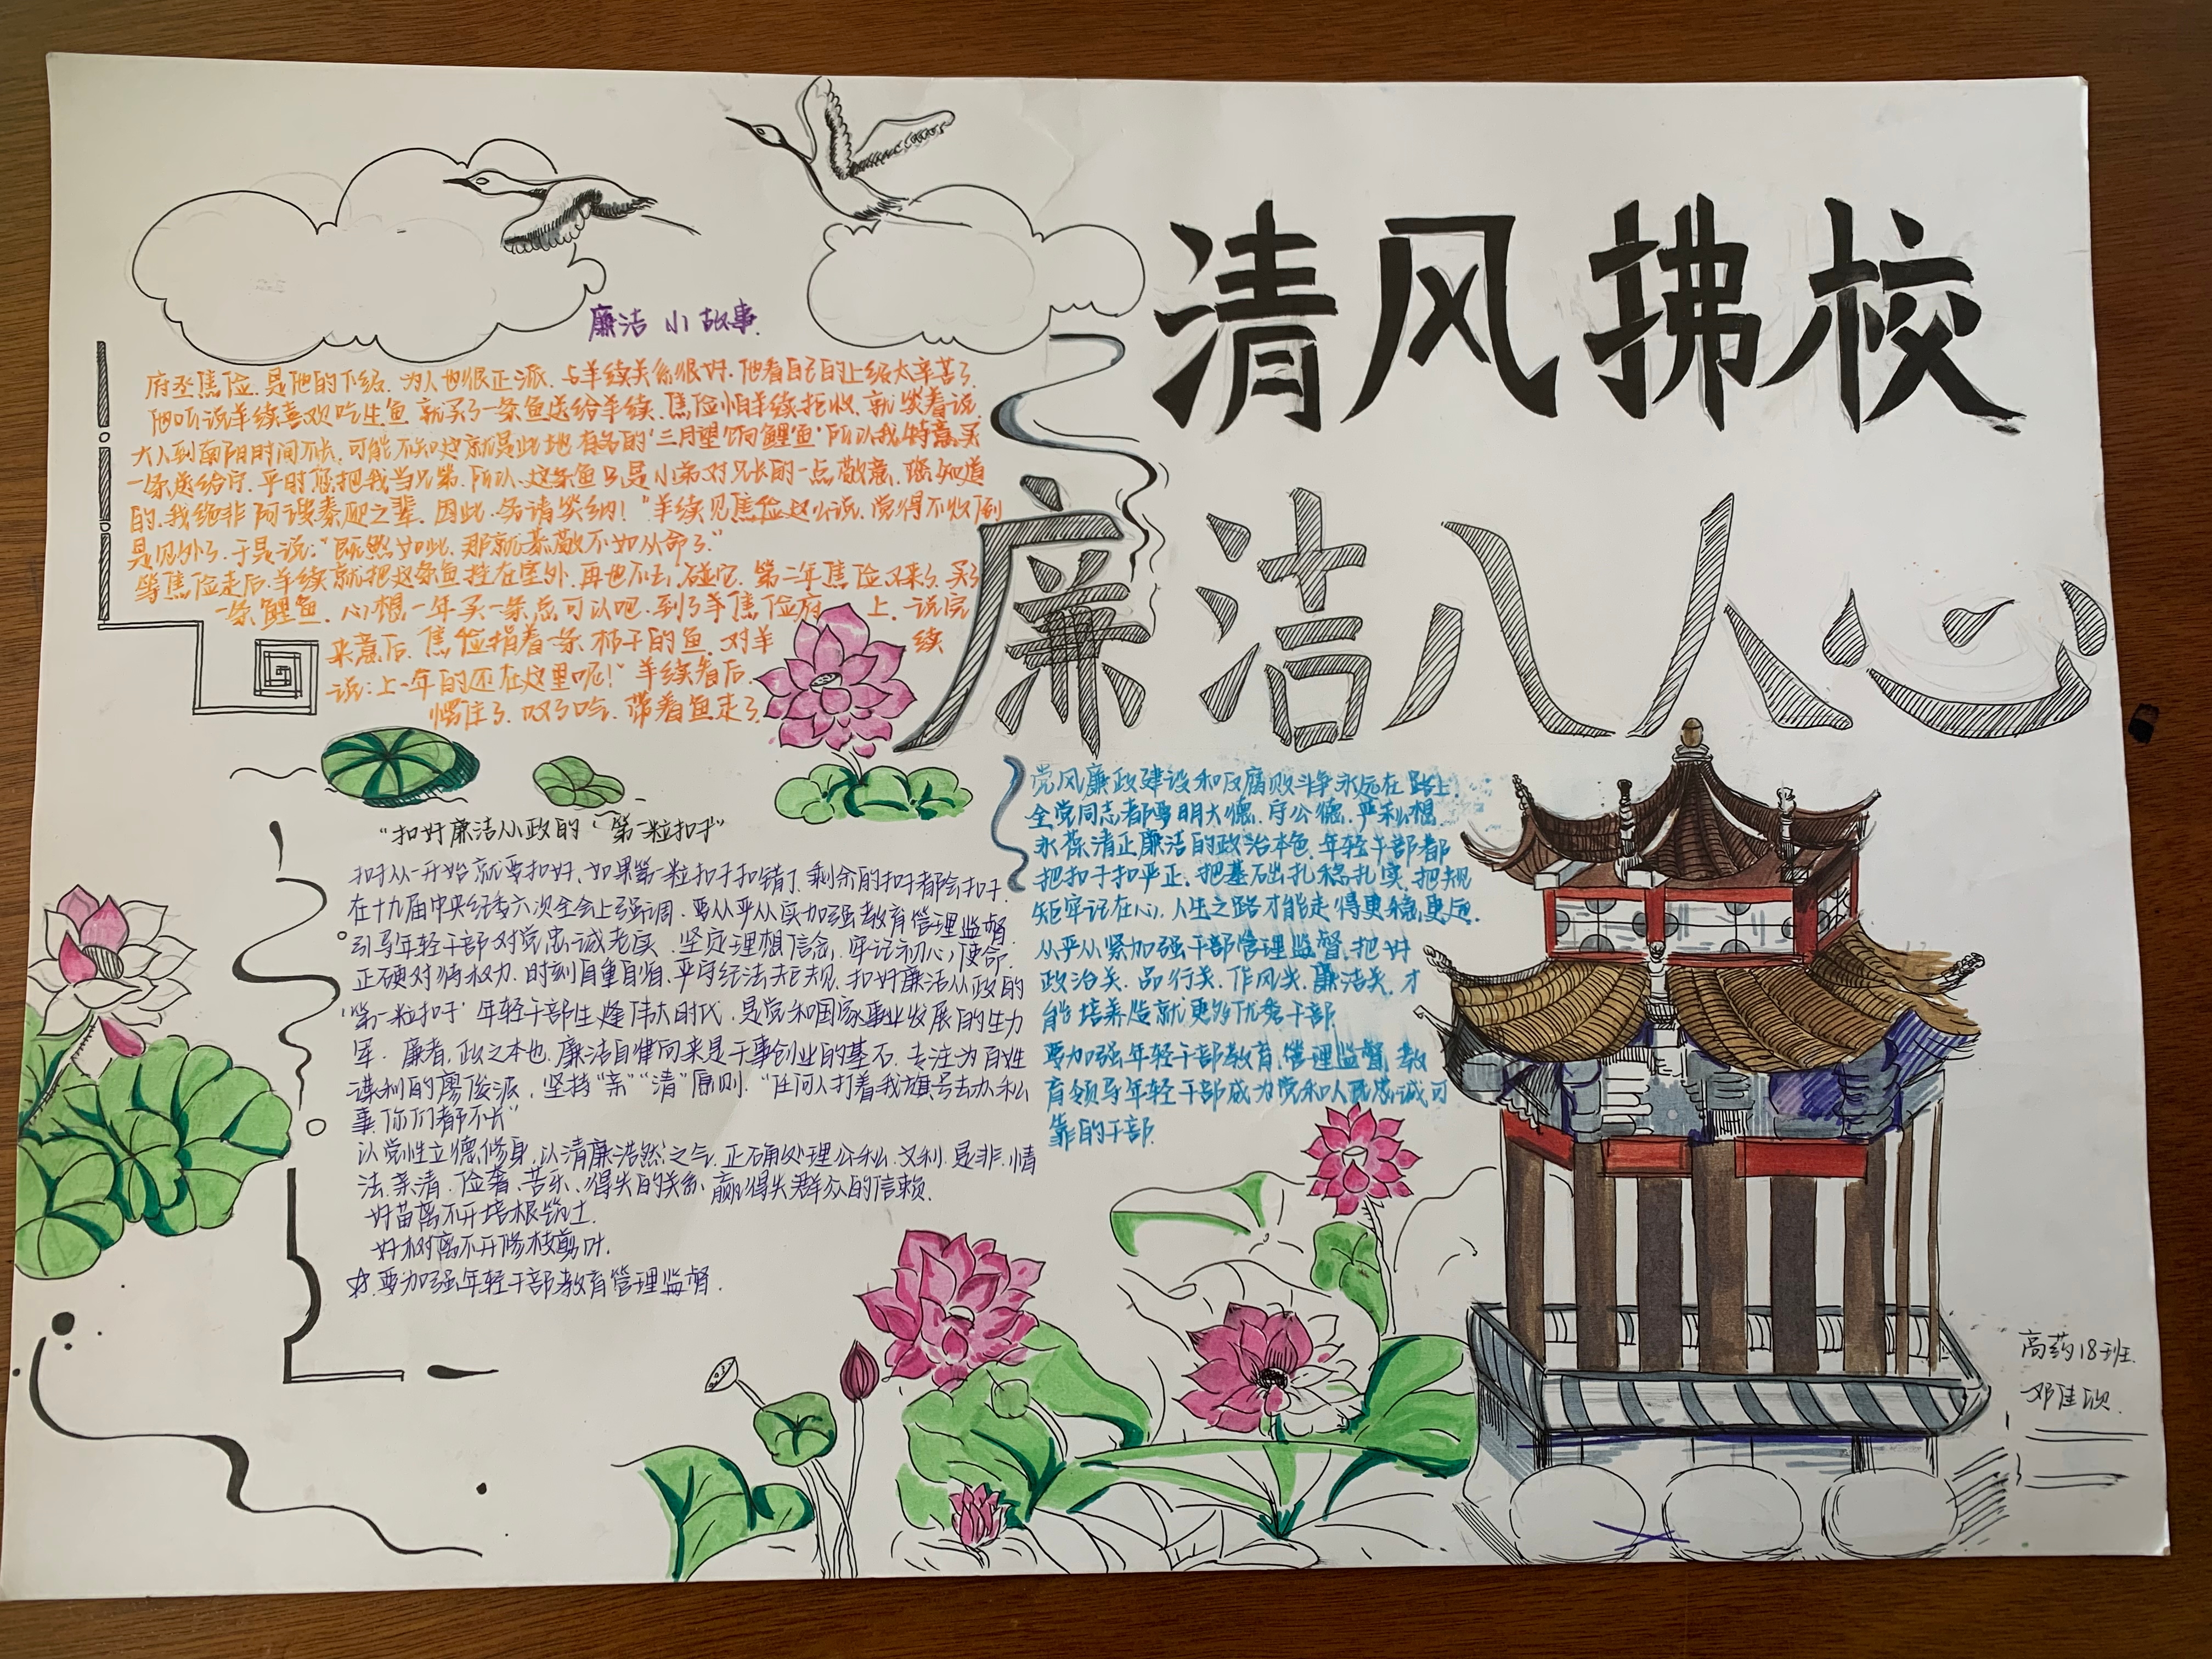 清风拂校
廉洁入人心
廉洁 小故事
府丞焦俭是他的下级.为人也很正派.与羊续关系很好.他看自己的上级太辛苦了.
他听说羊续喜欢吃生鱼 就买了一条鱼送给羊续.焦俭怕羊续拒收.就笑着说.
大人到南阳时间不长.可能不知这就是此地有名的'三月望饷鲤鱼'所以我特意买
一条送给你.平时您把我当兄弟.所以.这条鱼只是小弟对兄长的一点敬意.您知道
的.我绝非阿谀奉承之辈.因此.务请笑纳!"羊续见焦俭这么说.觉得不收倒
是见外了.于是说:"既然如此.那就恭敬不如从命了."
等焦俭走后.羊续就把这条鱼挂在室外.再也不去碰它.第二年焦俭又来了.买了
一条鲤鱼.心想一年买一条总可以吧.到了羊焦俭府 上.说完
来意后.焦俭指着一条枯干的鱼.对羊 续
说:上一年的还在这里呢!"羊续看后.
愣住了.叹了口气.带着鱼走了
"扣好廉洁从政的'第一粒扣子"
扣子从一开始就要扣好.如果第一粒扣子扣错了.剩余的扣子都会扣子.
在十九届中央纪委六次全会上强调.要从严从实加强教育管理监督.
引导年轻干部对党忠诚老实.坚定理想信念.牢记初心使命.
正确对待权力.时刻自重自省.严守纪法规.扣好廉洁从政的
'第一粒扣子'年轻干部生逢伟大时代.是党和国家事业发展的生力
军.廉者.政之本也.廉洁自律向来是干事创业的基石.专注为百姓
谋利的廖俊波.坚持"亲""清"原则."任何人打着我旗号去办私
事.你们都不长"
以党性立德修身.以清廉浩然之气.正确处理公私.义利.是非.情
法.亲清.俭奢.苦乐.得失的关系.赢得失群众的信赖.
好苗离不开培根筑土.
好树离不开修枝剪叶.
☆.要加强年轻干部教育管理监督.
党风廉政建设和反腐败斗争永远在路上
全党同志都要明大德.守公德.严私想
永葆清正廉洁的政治本色.年轻干部都
把扣子扣严正.把基础扎稳扎实.把规
矩牢记在心.人生之路才能走得更稳.更远.
从严从紧加强干部管理监督.把好
政治关.品行关.作风关.廉洁关.才
能培养造就更多优秀干部.
要加强年轻干部教育.管理监督.教
育领导年轻干部成为党和人民忠诚可
靠的干部.
高药18班.
邓佳欣.